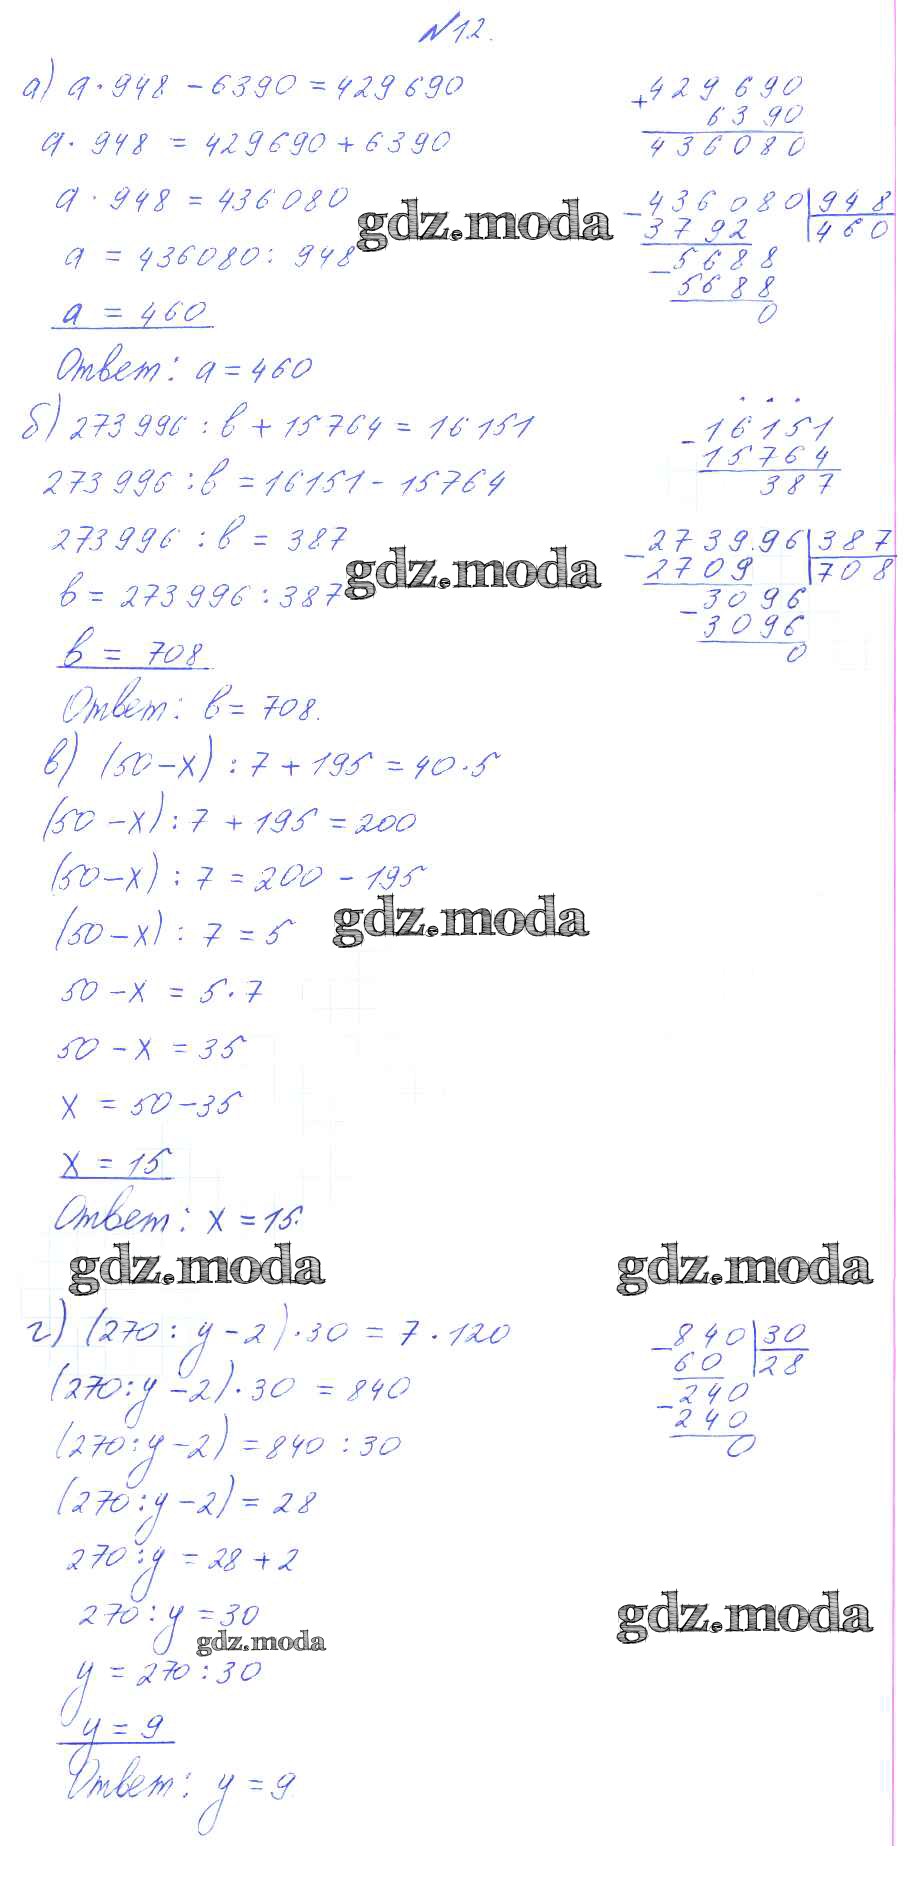 №12.
а) a·948 - 6390 = 429690
a·948 = 429690 + 6390
a·948 = 436080
a = 436080 : 948
a = 460
Ответ: a = 460
+ 429690
6390
436080
- 436080 | 948
3792 | 460
- 5688
5688
0
gdz.moda
б) 273996 : b + 15764 = 16151
273996 : b = 16151 - 15764
273996 : b = 387
b = 273996 : 387
b = 708
Ответ: b = 708.
- 16151
15764
387
- 273996 | 387
2709 | 708
- 3096
3096
0
gdz.moda
в) (50 - x) : 7 + 195 = 40·5
(50 - x) : 7 + 195 = 200
(50 - x) : 7 = 200 - 195
(50 - x) : 7 = 5
gdz.moda
50 - x = 5·7
50 - x = 35
x = 50 - 35
x = 15
Ответ: x = 15.
gdz.moda
gdz.moda
г) (270 : y - 2)·30 = 7·120
(270 : y - 2)·30 = 840
(270 : y - 2) = 840 : 30
(270 : y - 2) = 28
270 : y = 28 + 2
270 : y = 30
y = 270 : 30
y = 9
Ответ: y = 9
- 840 | 30
60 | 28
- 240
240
0
gdz.moda
gdz.moda